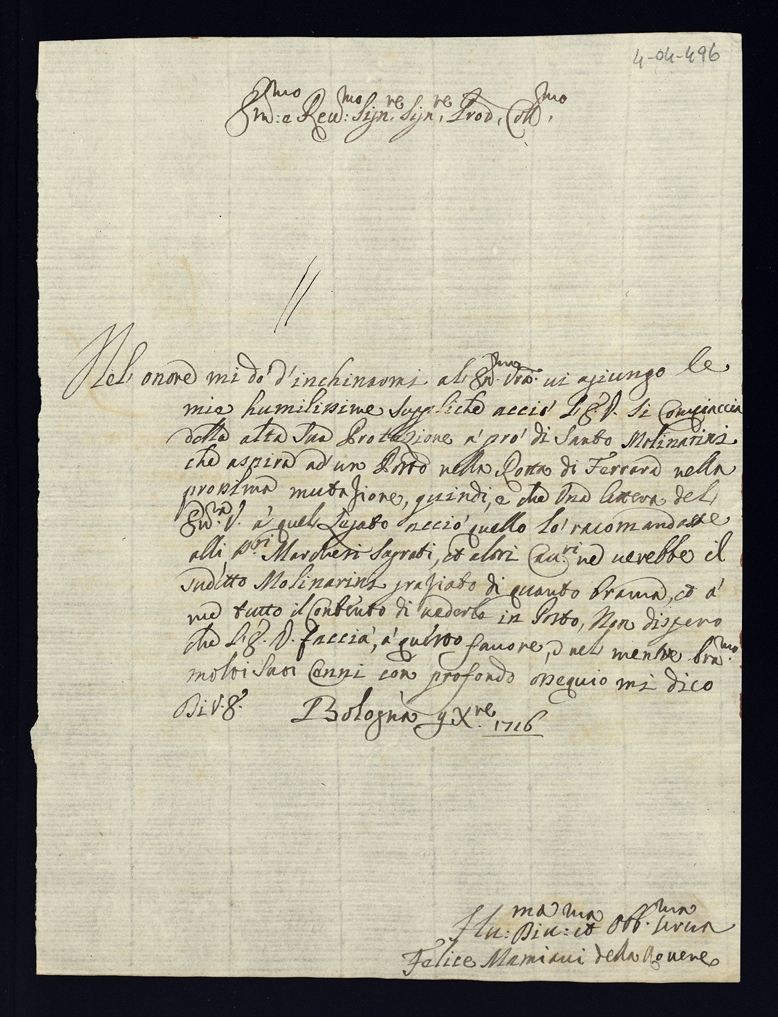 4-04-496
Em:mo e Rev:mo Sign:re Sign:re Prod, Coll:mo
Nel onore mi do' d'inchinarmi al Em:ma Vra: vi agiungo le
mie humilissime suppliche acciò l'E.V. si compiaccia
della alta sua Protezione a' pro' di Santo Molinarini
che aspira ad un Posto nella Rotta di Ferrara nella
prossima mutazione, quindi, e che una lettera del
Em:ma V. a' quel Legato acciò quello lo' racomandasse
alli SSri Marchesi Sagrati, et altri Cav:ri ne verebbe il
sudetto Molinarini graziato di quanto brama, et a'
me tutto il contento di vederlo in Posto, Non dispero
che l'E.V. faccia, a' questo favore, e nel mentre bra:mo
molti suoi Cenni con profondo ossequio mi dico
Di V.E. Bologna 9 X:re 1716
Hu:ma Div:ma et Obb:ma Serva
Felice Mamiani della Rovere